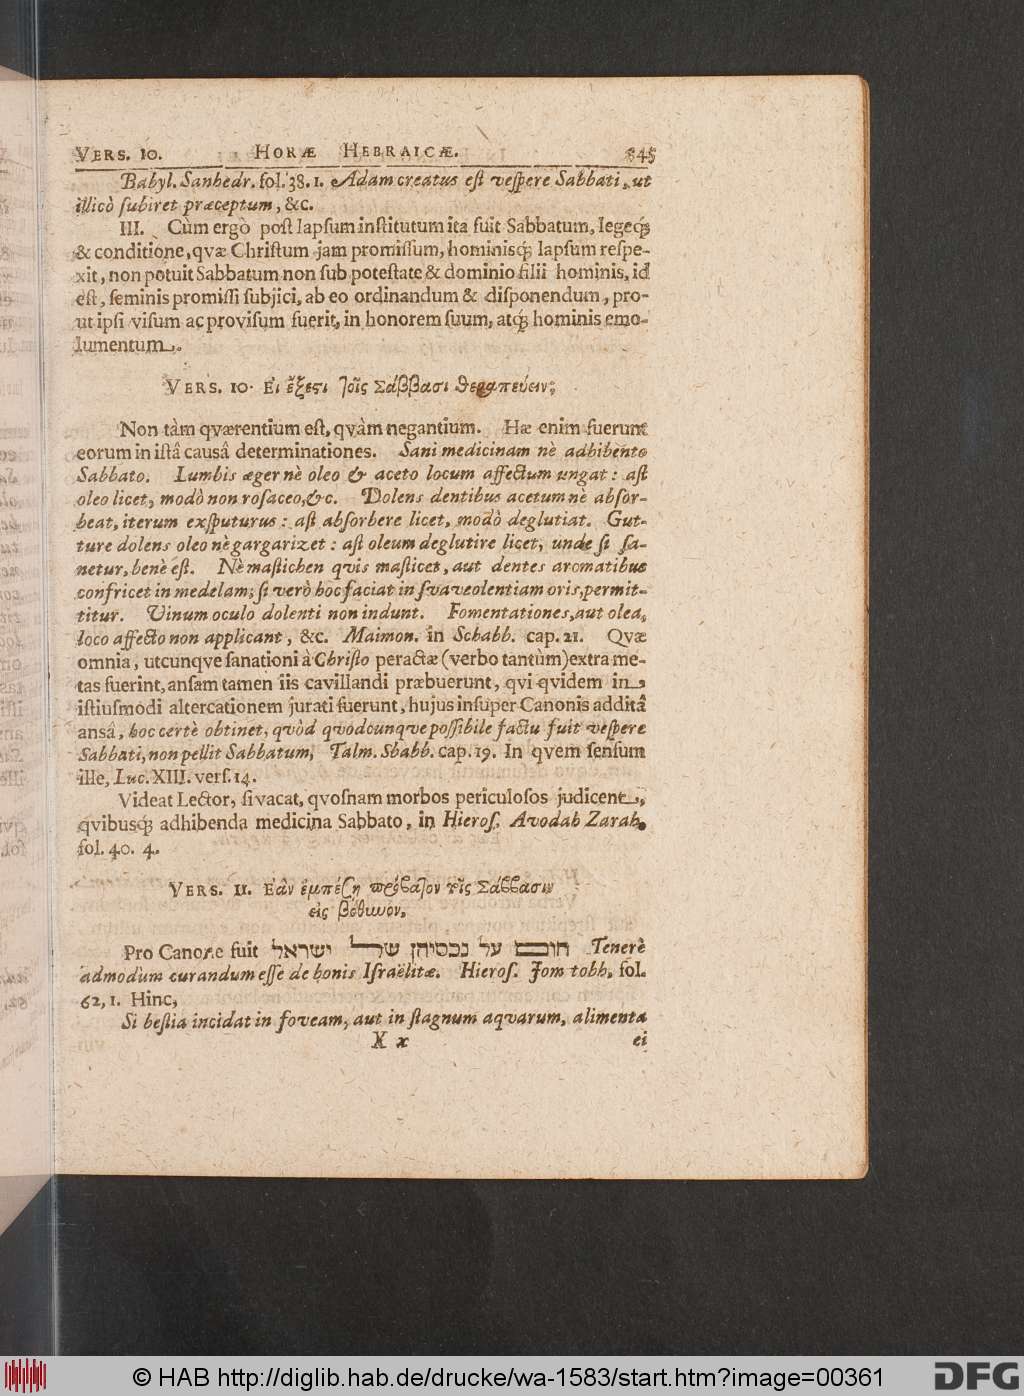 VERS. 10. HORÆ HEBRAICÆ. 345
Babyl. Sanhedr. fol. 38. 1. Adam creatus eſt veſpere Sabbati, ut
illicò ſubiret præceptum, &c.
III. Cùm ergò poſt lapſum inſtitutum ita fuit Sabbatum, legeq́;
& conditione, qvæ Chriſtum jam promiſſum, hominisq́; lapſum reſpe-
xit, non potuit Sabbatum non ſub poteſtate & dominio filii hominis, id
eſt, ſeminis promiſſi ſubjici, ab eo ordinandum & diſponendum, pro-
ut ipſi viſum ac proviſum fuerit, in honorem ſuum, atq́; hominis emo-
lumentum.
VERS. 10. Ει ἔξεςι τοῖς Σάββασι θεραπεύειν;
Non tàm qværentium eſt, qvàm negantium. Hæ enim fuerunt
eorum in iſtâ causâ determinationes. Sani medicinam nè adhibento
Sabbato. Lumbis æger nè oleo & aceto locum affectum ungat: aſt
oleo licet, modò non roſaceo, &c. Dolens dentibus acetum nè abſor-
beat, iterum exſputurus: aſt abſorbere licet, modò deglutiat. Gut-
ture dolens oleo nè gargarizet: aſt oleum deglutire licet, unde ſi ſa-
netur, benè eſt. Nè maſtichen qvis maſticet, aut dentes aromatibus
confricet in medelam; ſi verò hoc faciat in ſvaveolentiam oris, permit-
titur. Vinum oculo dolenti non indunt. Fomentationes, aut olea,
loco affecto non applicant, &c. Maimon. in Schabb. cap. 21. Qvæ
omnia, utcunqve ſanationi à Chriſto peractæ (verbo tantùm) extra me-
tas fuerint, anſam tamen iis cavillandi præbuerunt, qvi qvidem in
iſtiusmodi altercationem jurati fuerunt, hujus inſuper Canonis additâ
ansâ, hoc certè obtinet, qvòd qvodcunqve poſſibile factu fuit veſpere
Sabbati, non pellit Sabbatum, Talm. Shabb. cap. 19. In qvem ſenſum
ille, Luc. XIII. verſ. 14.
Videat Lector, ſi vacat, qvoſnam morbos periculoſos judicent,
qvibusq́; adhibenda medicina Sabbato, in Hieroſ. Avodah Zarah.
fol. 40. 4.
VERS. 11. Εὰν ἐμπέσῃ πρόβατον τοῖς Σάββασιν
εἰς βόθυνον.
Pro Canone fuit חוסם על נכסיהן של ישראל Tenerè
admodùm curandum eſſe de bonis Iſraëlitæ. Hieroſ. Jom tobh, fol.
62, 1. Hinc,
Si beſtia incidat in foveam, aut in ſtagnum aqvarum, alimenta
X x ei
© HAB http://diglib.hab.de/drucke/wa-1583/start.htm?image=00361 DFG